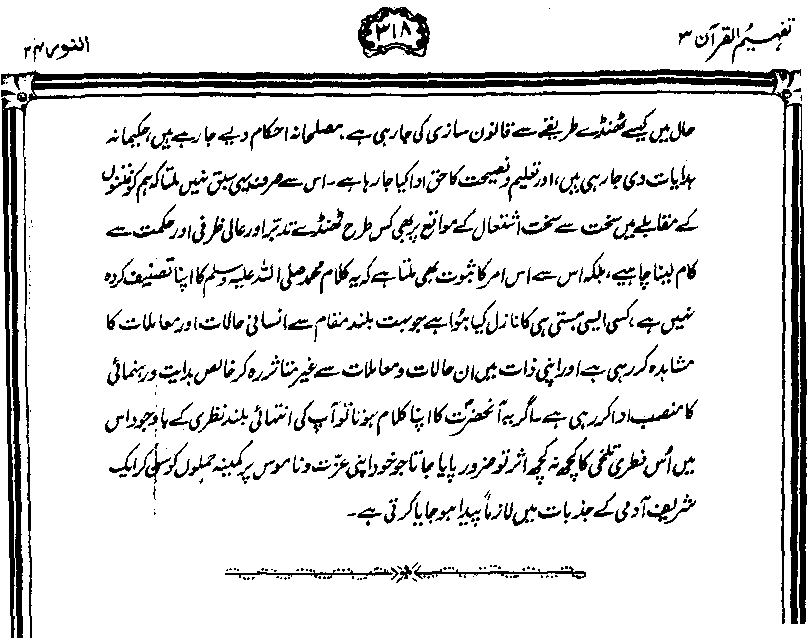 تفہیم القرآن ۳
۳۱۸
النور ۲۴
حال میں کیسے ٹھنڈے طریقے سے قانون سازی کی جا رہی ہے، مصلحانہ احکام دیے جا رہے ہیں، حکیمانہ
ہدایات دی جا رہی ہیں، اور تعلیم و نصیحت کا حق ادا کیا جا رہا ہے۔ اس سے صرف یہی سبق نہیں ملتا کہ ہم کو فتنوں
کے مقابلے میں سخت سے سخت اشتعال کے مواقع پر بھی کس طرح ٹھنڈے تدبر اور عالی ظرفی اور حکمت سے
کام لینا چاہیے، بلکہ اس سے اس امر کا ثبوت بھی ملتا ہے کہ یہ کلام محمد صلی اللہ علیہ وسلم کا اپنا تصنیف کردہ
نہیں ہے، کسی ایسی ہستی ہی کا نازل کیا ہوا ہے جو بہت بلند مقام سے انسانی حالات اور معاملات کا
مشاہدہ کر رہی ہے اور اپنی ذات میں ان حالات و معاملات سے غیر متاثر رہ کر خالص ہدایت و رہنمائی
کا منصب ادا کر رہی ہے۔ اگر یہ آنحضرتؐ کا اپنا کلام ہوتا تو آپ کی انتہائی بلند نظری کے باوجود اس
میں اُس فطری تلخی کا کچھ نہ کچھ اثر تو ضرور پایا جاتا جو خود اپنی عزت و ناموس پر کمینہ حملوں کو سن کر ایک
شریف آدمی کے جذبات میں لازماً پیدا ہو جایا کرتی ہے۔